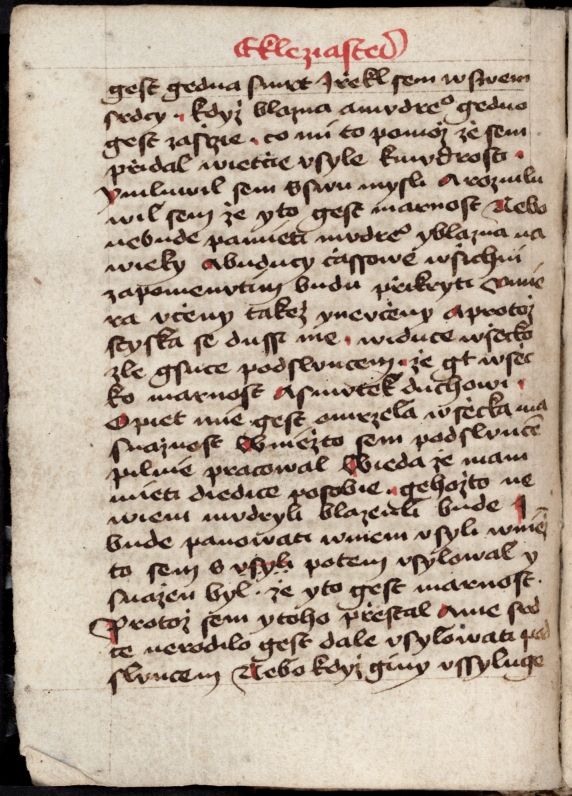 Ekleziastes
gest gedna smrt I řekl sem w swem
srdcy · když blazna a mvdreº gedno
gest zaſtzie · co mi to pomož že sem
přidal wietčie vsyle k mvdrosti ·
Y mluwil sem s swu mysli A rozmlu
wil sem že y to gest marnost Nebo
nebude pamieti mvdreº y blazna na
wieky A buducy čassowé wſichni
zapomenvtim budu přikryti Vmie
ra včeny takež y nevčeny A protož
styska se dussi me · widuce wſecko
zle gsuce pod slvncem · že gt wſec
ko marnost A smvtek duchowi ·
Opiet mie gest omrzela wſecka ma
snažnost W niežto sem pod slvncē
pilnie pracowal Wieda že mam
mieti diedice po sobie · gehožto ne
wiem mvdryli blazenli bude A
bude panowati w mem vsyli w niež
to sem s vsyli potem vsylowal y
snažen byl · že y to gest marnost ·
Protož sem y toho přestal A me srd
ce nerodilo gest dale vsylowati pod
slvncem Nebo když giny vssyluge